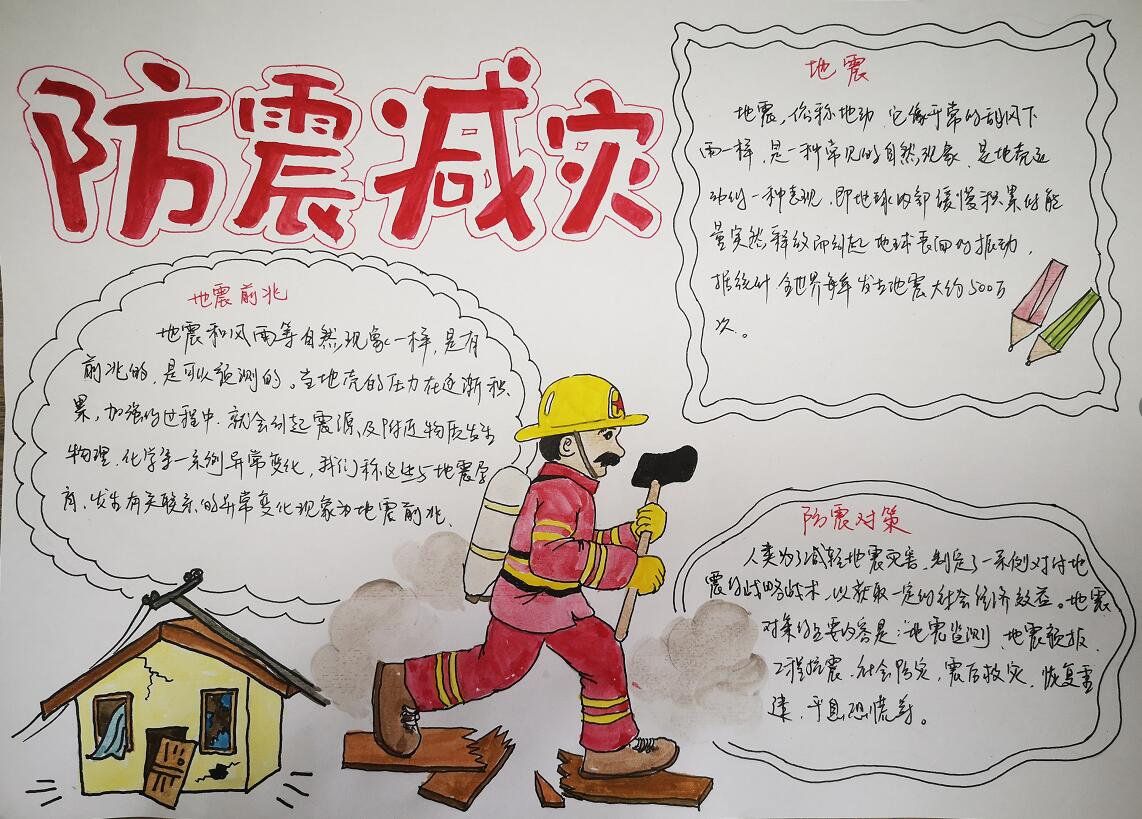 防震减灾
地震
地震，俗称地动，它像平常的刮风下
雨一样，是一种常见的自然现象，是地壳运
动的一种表现，即地球内部缓慢积累的能
量突然释放而引起地球表面的振动，
据统计全世界每年发生地震大约500万
次。
地震前兆
地震和风雨等自然现象一样，是有
前兆的，是可以预测的。当地壳的压力在逐渐积
累，加强的过程中，就会引起震源及附近物质发生
物理、化学等一系列异常变化，我们称这些与地震孕
育、发生有关联系的异常变化现象为地震前兆、
防震对策
人类为了减轻地震灾害，制定了一系例对付地
震的战略战术，以获取一定的社会经济效益。地震
对策的主要内容是：地震监测、地震预报、
工程抗震、社会防灾，震后救灾，恢复重
建，平息恐慌等。